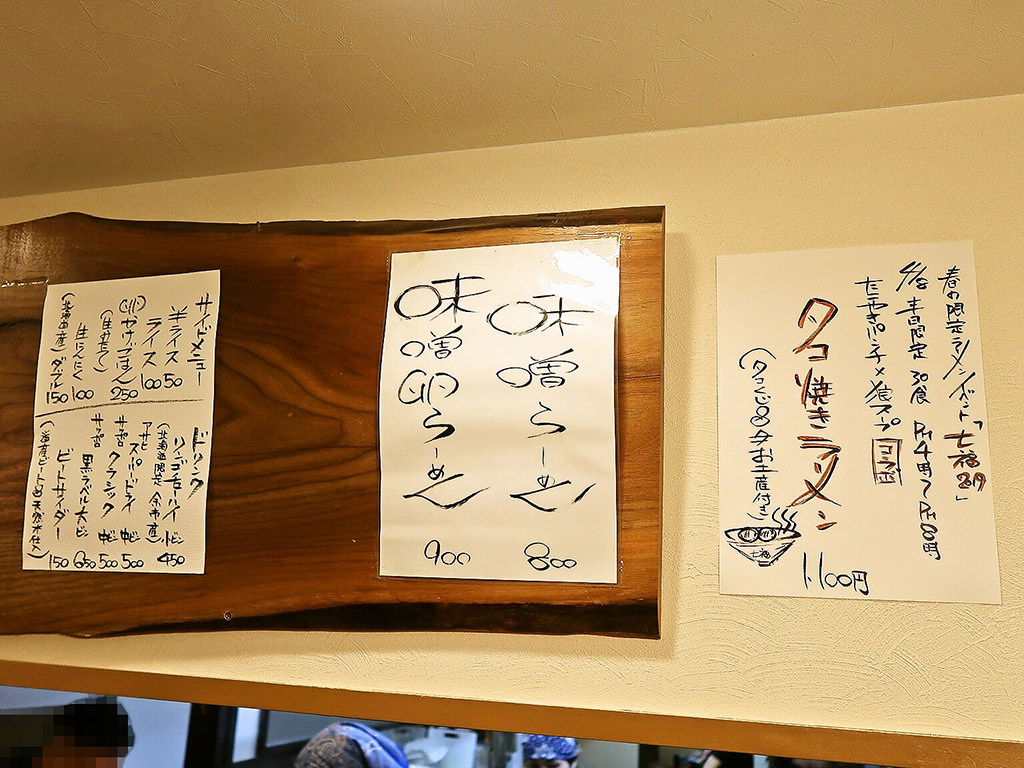 春の限定ラーメンイベント「七福巡り」
4/8 平日限定 30食
たこやきパンチ×濃スープ
コラボ
タコ焼きラーメン
(タコくじ8ケお土産付き)
七福
1100円
味噌らーめん
800
味噌卵らーめん
900
サイドメニュー
半ライス 50
ライス 100
卵かけごはん 250
生にんにく 100
(北海道産) ダブル 150
ドリンク
リンゴチューハイ ビン 450
(北海道限定 余市産)
アサヒ
スーパードライ 中ビン 500
サッポロ
クラシック 中ビン 500
サッポロ
黒ラベル 大ビン 650
ビートサイダー 150
(道産ビートの天然水仕込)